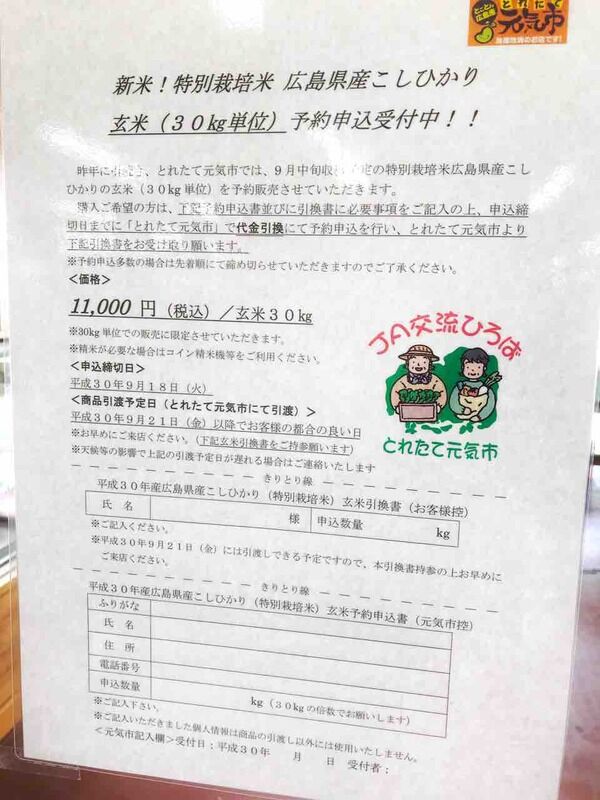 とことん
広島産
とれたて
元気市
新米！特別栽培米 広島県産こしひかり
玄米（３０㎏単位）予約申込受付中！！
昨年に引続き、とれたて元気市では、９月中旬収穫予定の特別栽培米広島県産こし
ひかりの玄米（30㎏単位）を予約販売させていただきます。
購入ご希望の方は、下記予約申込書並びに引換書に必要事項をご記入の上、申込締
切日までに「とれたて元気市」で代金引換にて予約申込を行い、とれたて元気市より
下記引換書をお受け取り願います。
※予約申込多数の場合は先着順にて締め切らせていただきますのでご了承ください。
＜価格＞
11,000 円（税込）／玄米３０㎏
※30㎏単位での販売に限定させていただきます。
※精米が必要な場合はコイン精米機等をご利用ください。
＜申込締切日＞
平成３０年９月１８日（火）
＜商品引渡予定日（とれたて元気市にて引渡）＞
平成３０年９月２１日（金）以降でお客様の都合の良い日
※お早めにご来店ください。（下記玄米引換書をご持参願います）
※天候等の影響で上記の引渡予定日が遅れる場合はご連絡いたします
JA交流ひろば
とれたて元気市
きりとり線
平成３０年産広島県産こしひかり（特別栽培米）玄米引換書（お客様控）
氏 名 様 申込数量 kg
※ご記入ください。
※平成３０年９月２１日（金）には引渡しできる予定ですので、本引換書持参の上お早めに
ご来店ください。
きりとり線
平成３０年産広島県産こしひかり（特別栽培米）玄米予約申込書（元気市控）
ふりがな
氏 名
住 所
電話番号
申込数量 kg（３０㎏の倍数でお願いします）
※ご記入下さい。
※ご記入いただきました個人情報は商品の引渡し以外には使用いたしません。
＜元気市記入欄＞受付日：平成３０年 月 日 受付者：